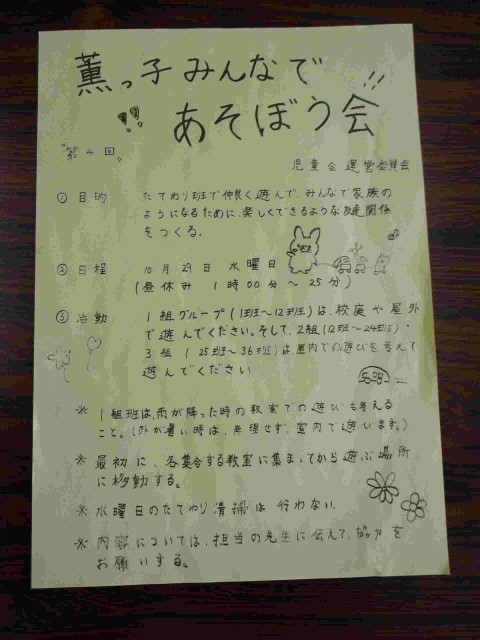 薫っ子みんなで!!
!! あそぼう会
"第4回"
児童会運営委員会
① 目的 たてわり班で仲良く遊んで、みんなで家族の
ようになるために、楽しくできるような友達関係
をつくる。
② 日程 10月29日 水曜日
(昼休み 1時00分〜25分)
③ 活動 1組グループ(1班〜12班)は、校庭や屋外
で遊んでください。そして、2組(12班〜24班)・
3組(25班〜36班)は、室内での遊びを考えて
遊んでください
※ 1組班は、雨が降った時の教室での遊びも考える
こと。(外が暑い時は、無理せず、室内で遊びます。)
※ 最初に、各集合する教室に集まってから遊ぶ場所
に移動する。
※ 水曜日のたてわり清掃は行わない
※ 内容については、担当の先生に伝えて、協力を
お願いする。